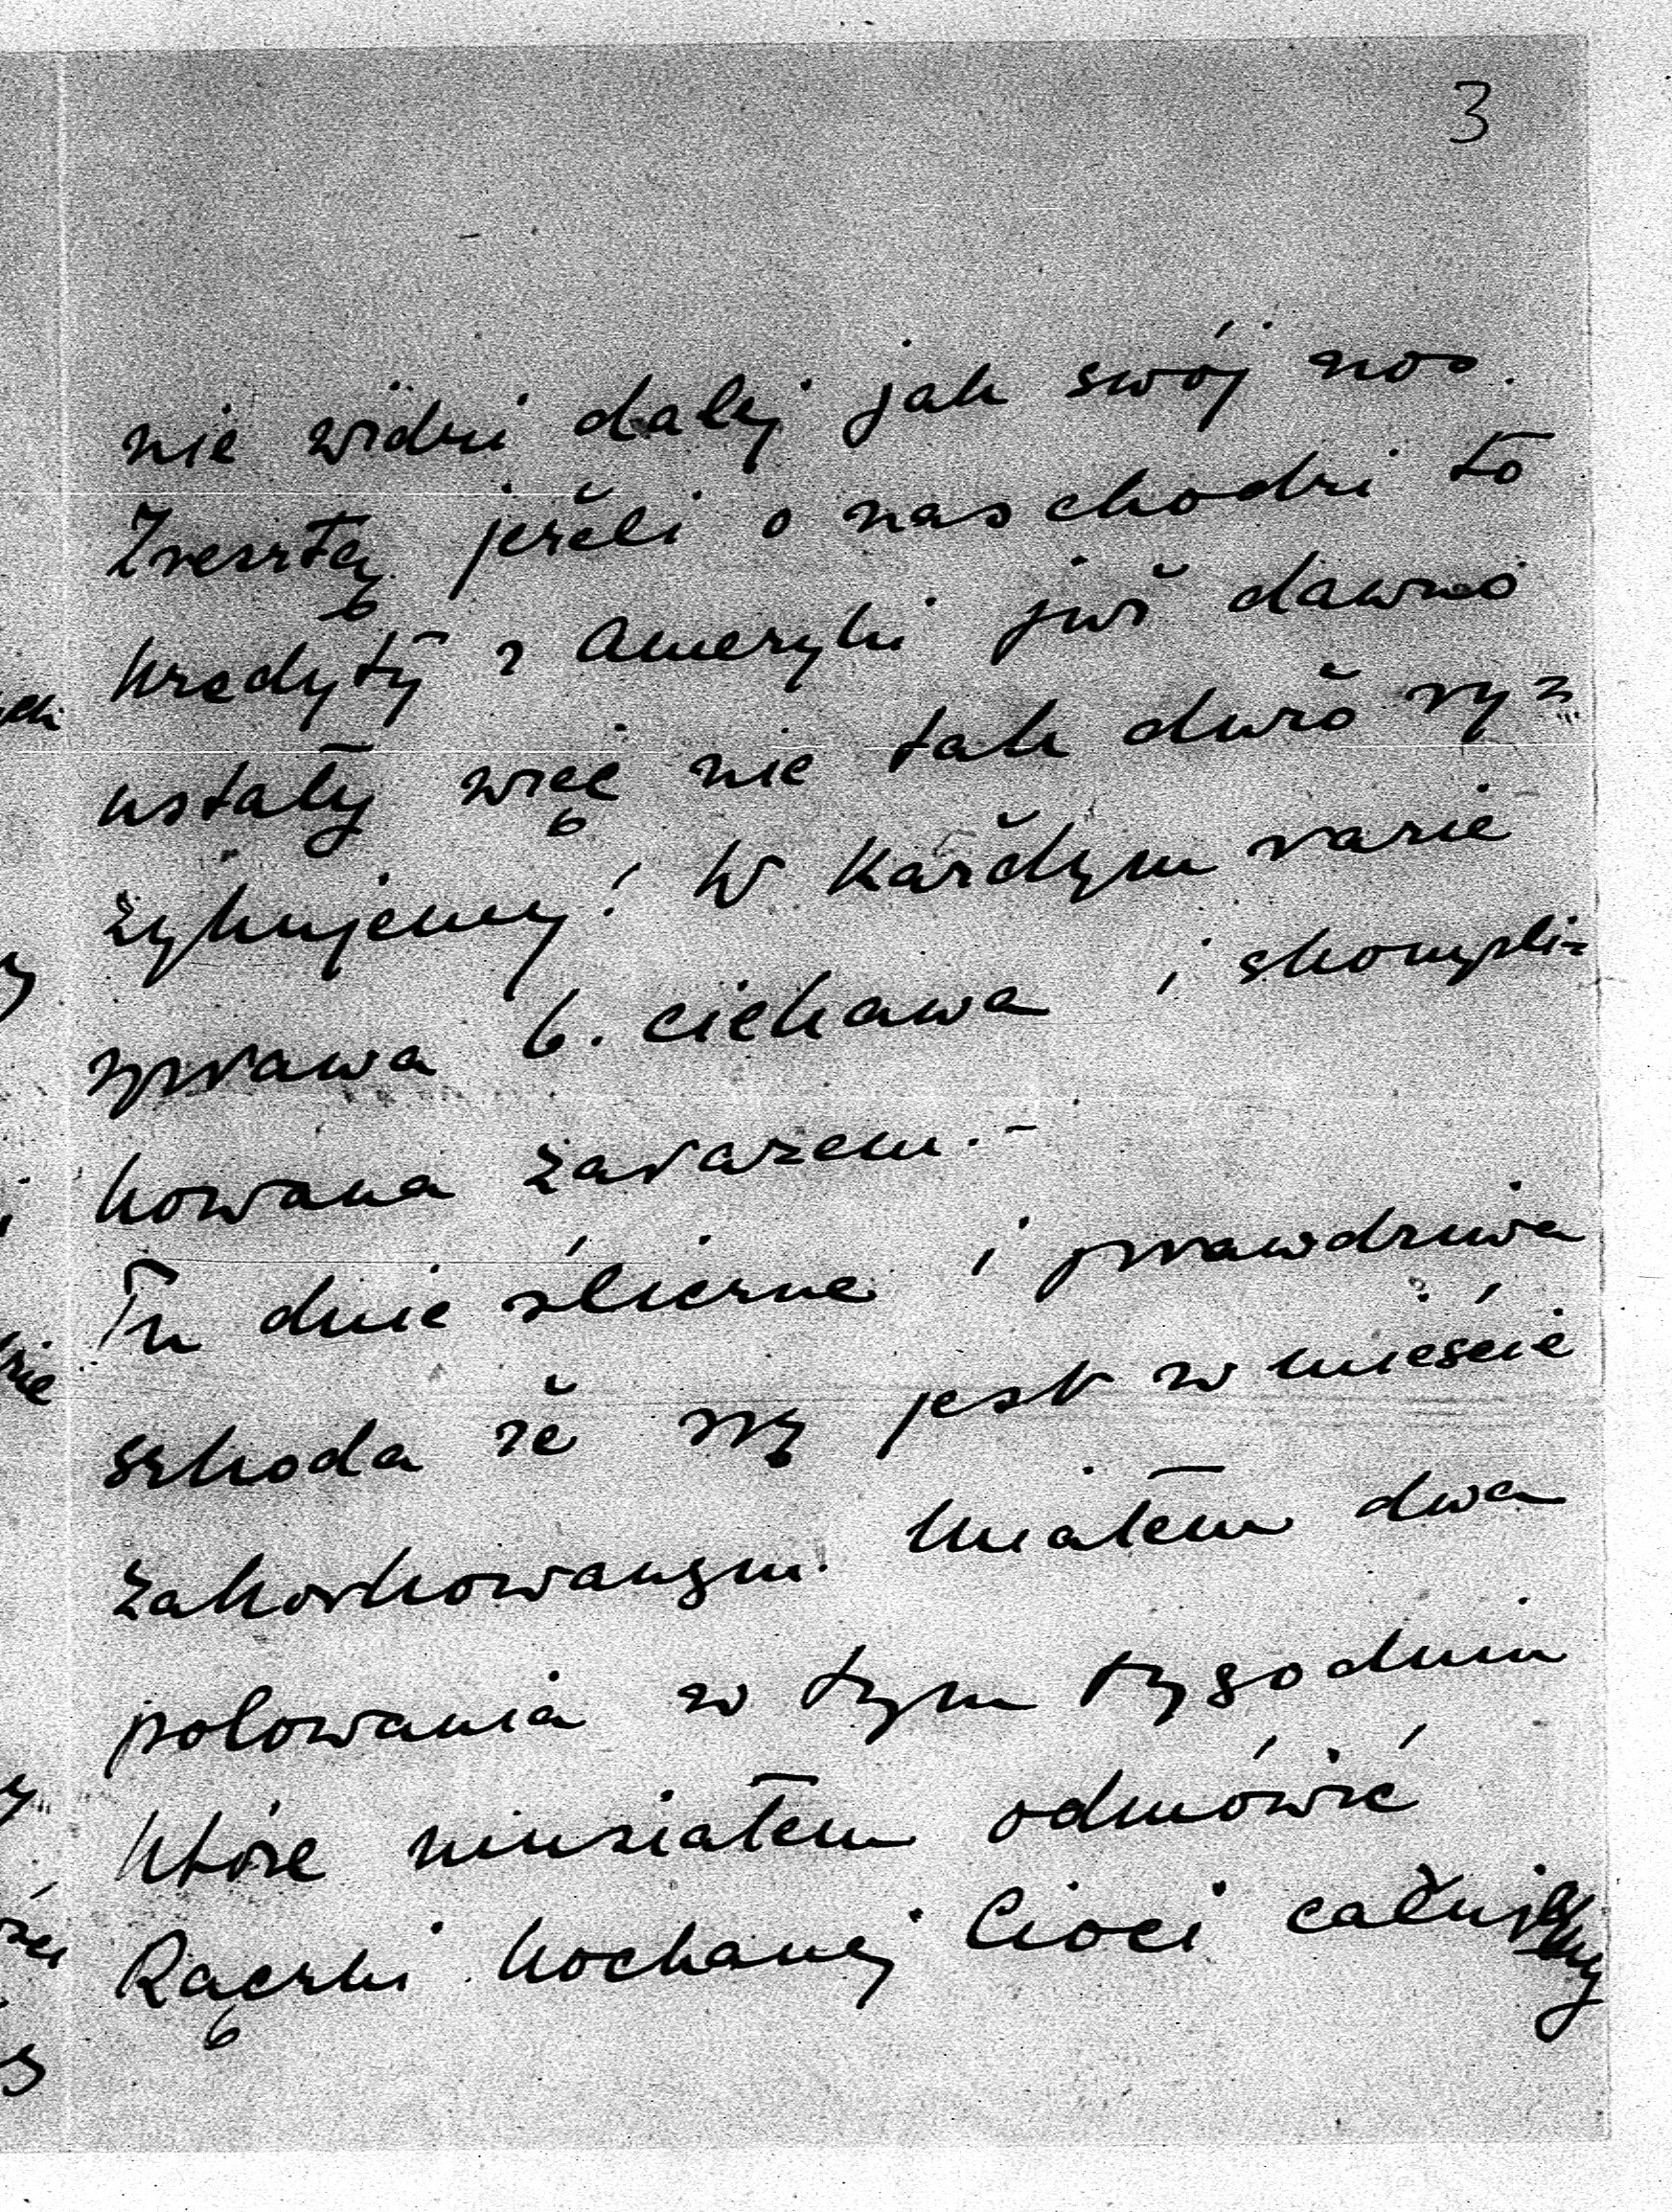 3
nie widzi dalej jak swój nos.
Zresztą jeżeli o nas chodzi to
kredyty z Ameryki już dawno
ustały więc nie tak dużo ry=
zykujemy! W każdym razie
sprawa b. ciekawa i skompli=
kowana zarazem.-
Tu dnie śliczne i prawdziwa
szkoda że się jest w mieście
zakorkowanym. Miałem dwa
polowania w tym tygodniu
które musiałem odmówić
Rączki kochanej Cioci całuję